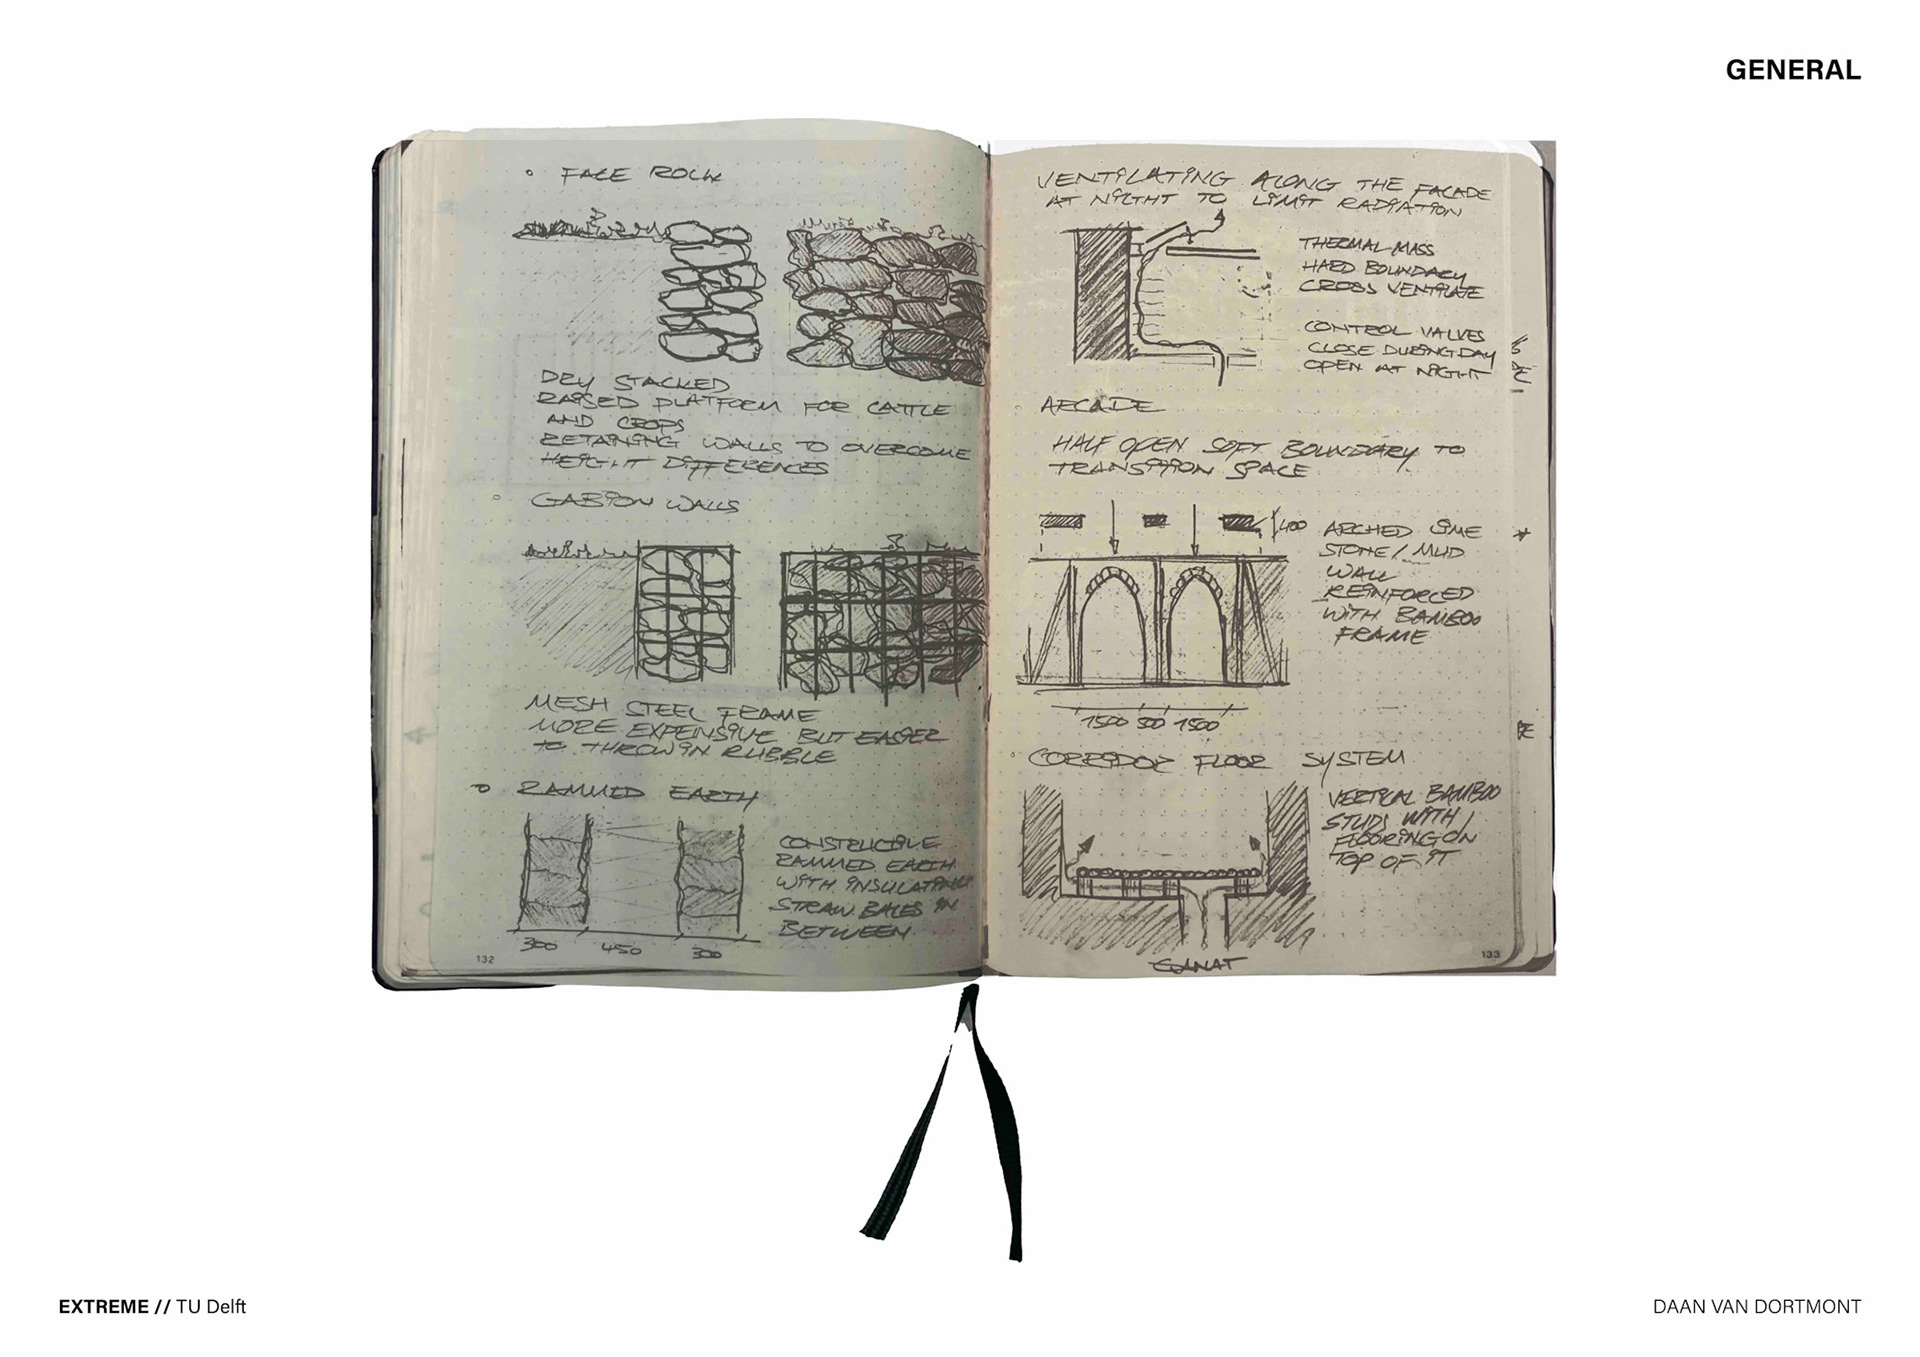 GENERAL
FACE ROCK
DRY STACKED
RAISED PLATFORM FOR CATTLE
AND CROPS
RETAINING WALLS TO OVERCOME
HEIGHT DIFFERENCES
GABION WALLS
MESH STEEL FRAME
MORE EXPENSIVE BUT EASIER
TO THROW IN RUBBLE
RAMMED EARTH
CONSTRUCTIBLE
RAMMED EARTH
WITH INSULATING
STRAW BALES IN
BETWEEN
300 450 300
132
VENTILATING ALONG THE FACADE
AT NIGTHT TO LIMIT RADIATION
THERMAL MASS
HARD BOUNDARY
CROSS VENTILATE
CONTROL VALVES
CLOSE DURING DAY
OPEN AT NIGHT
ARCADE
HALF OPEN SOFT BOUNDARY TO
TRANSITION SPACE
400
ARCHED LIME
STONE / MUD
WALL
REINFORCED
WITH BAMBOO
FRAME
1500 500 1500
CORRIDOR FLOOR SYSTEM
VERTICAL BAMBOO
STUDS WITH
FLOORING ON
TOP OF IT
QANAT
133
EXTREME // TU Delft
DAAN VAN DORTMONT